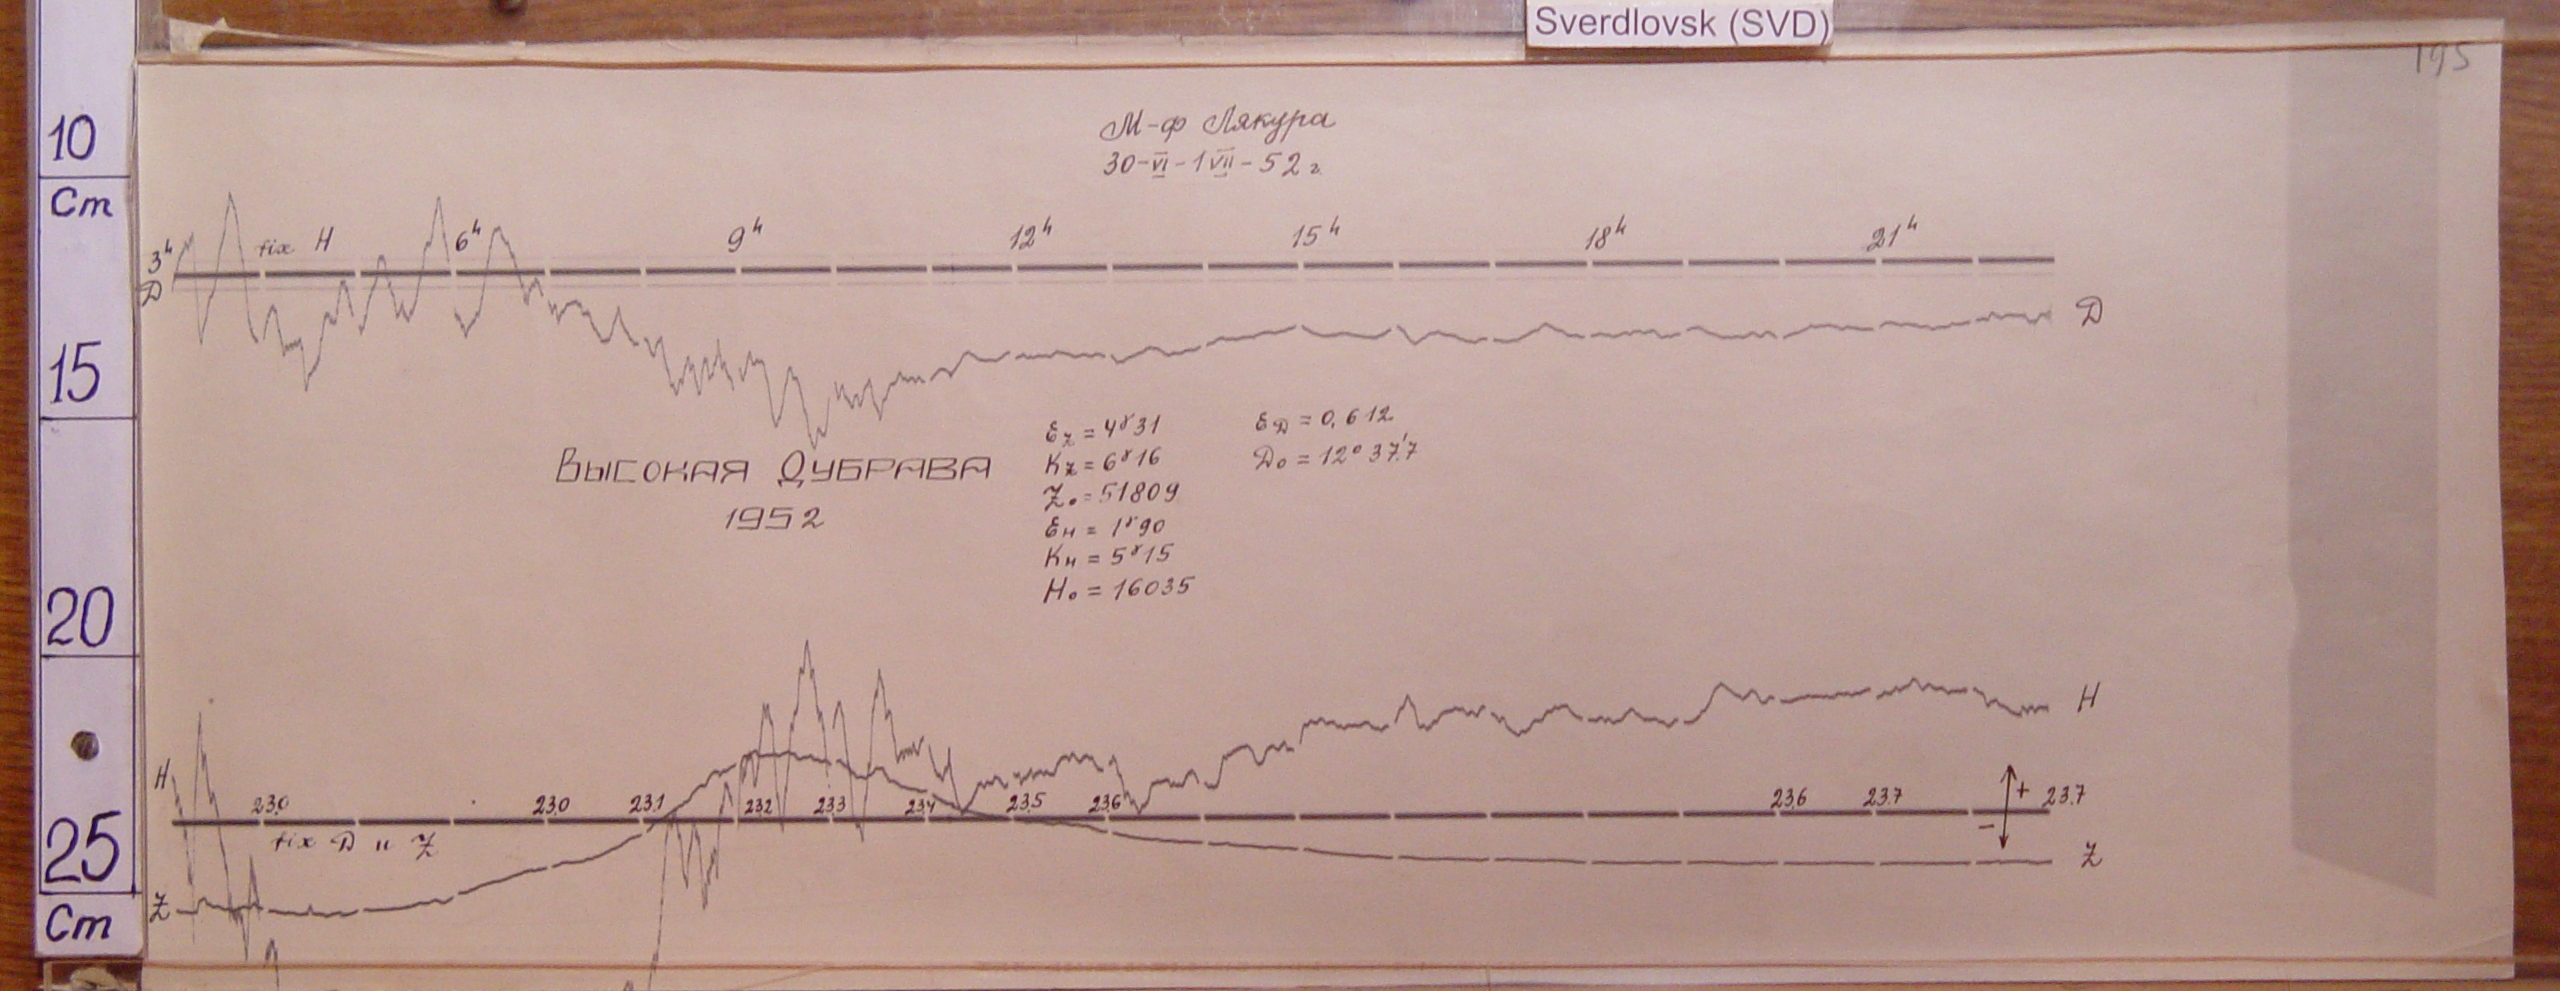 Sverdlovsk (SVD)
195
10
Cm
15
20
25
Cm
М-ф Лякура
30-VI-1 VII-52 г.
3ʰ
fix H
6ʰ
9ʰ
12ʰ
15ʰ
18ʰ
21ʰ
D
D
Высокая Дубрава
1952
Ɛz = 4ᵞ31
Kz = 6ᵞ16
Z₀ = 51809
Ɛн = 1ᵞ90
Kн = 5ᵞ15
H₀ = 16035
ƐD = 0,612
D₀ = 12° 37.'7
H
H
23,0
23,0
23,1
23,2
23,3
23,4
23,5
23,6
23,6
23,7
+
23,7
fix D и Z
-
Z
Z